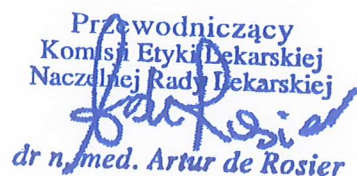 Przewodniczący
Komisji Etyki Lekarskiej
Naczelnej Rady Lekarskiej
dr n. med. Artur de Rosier